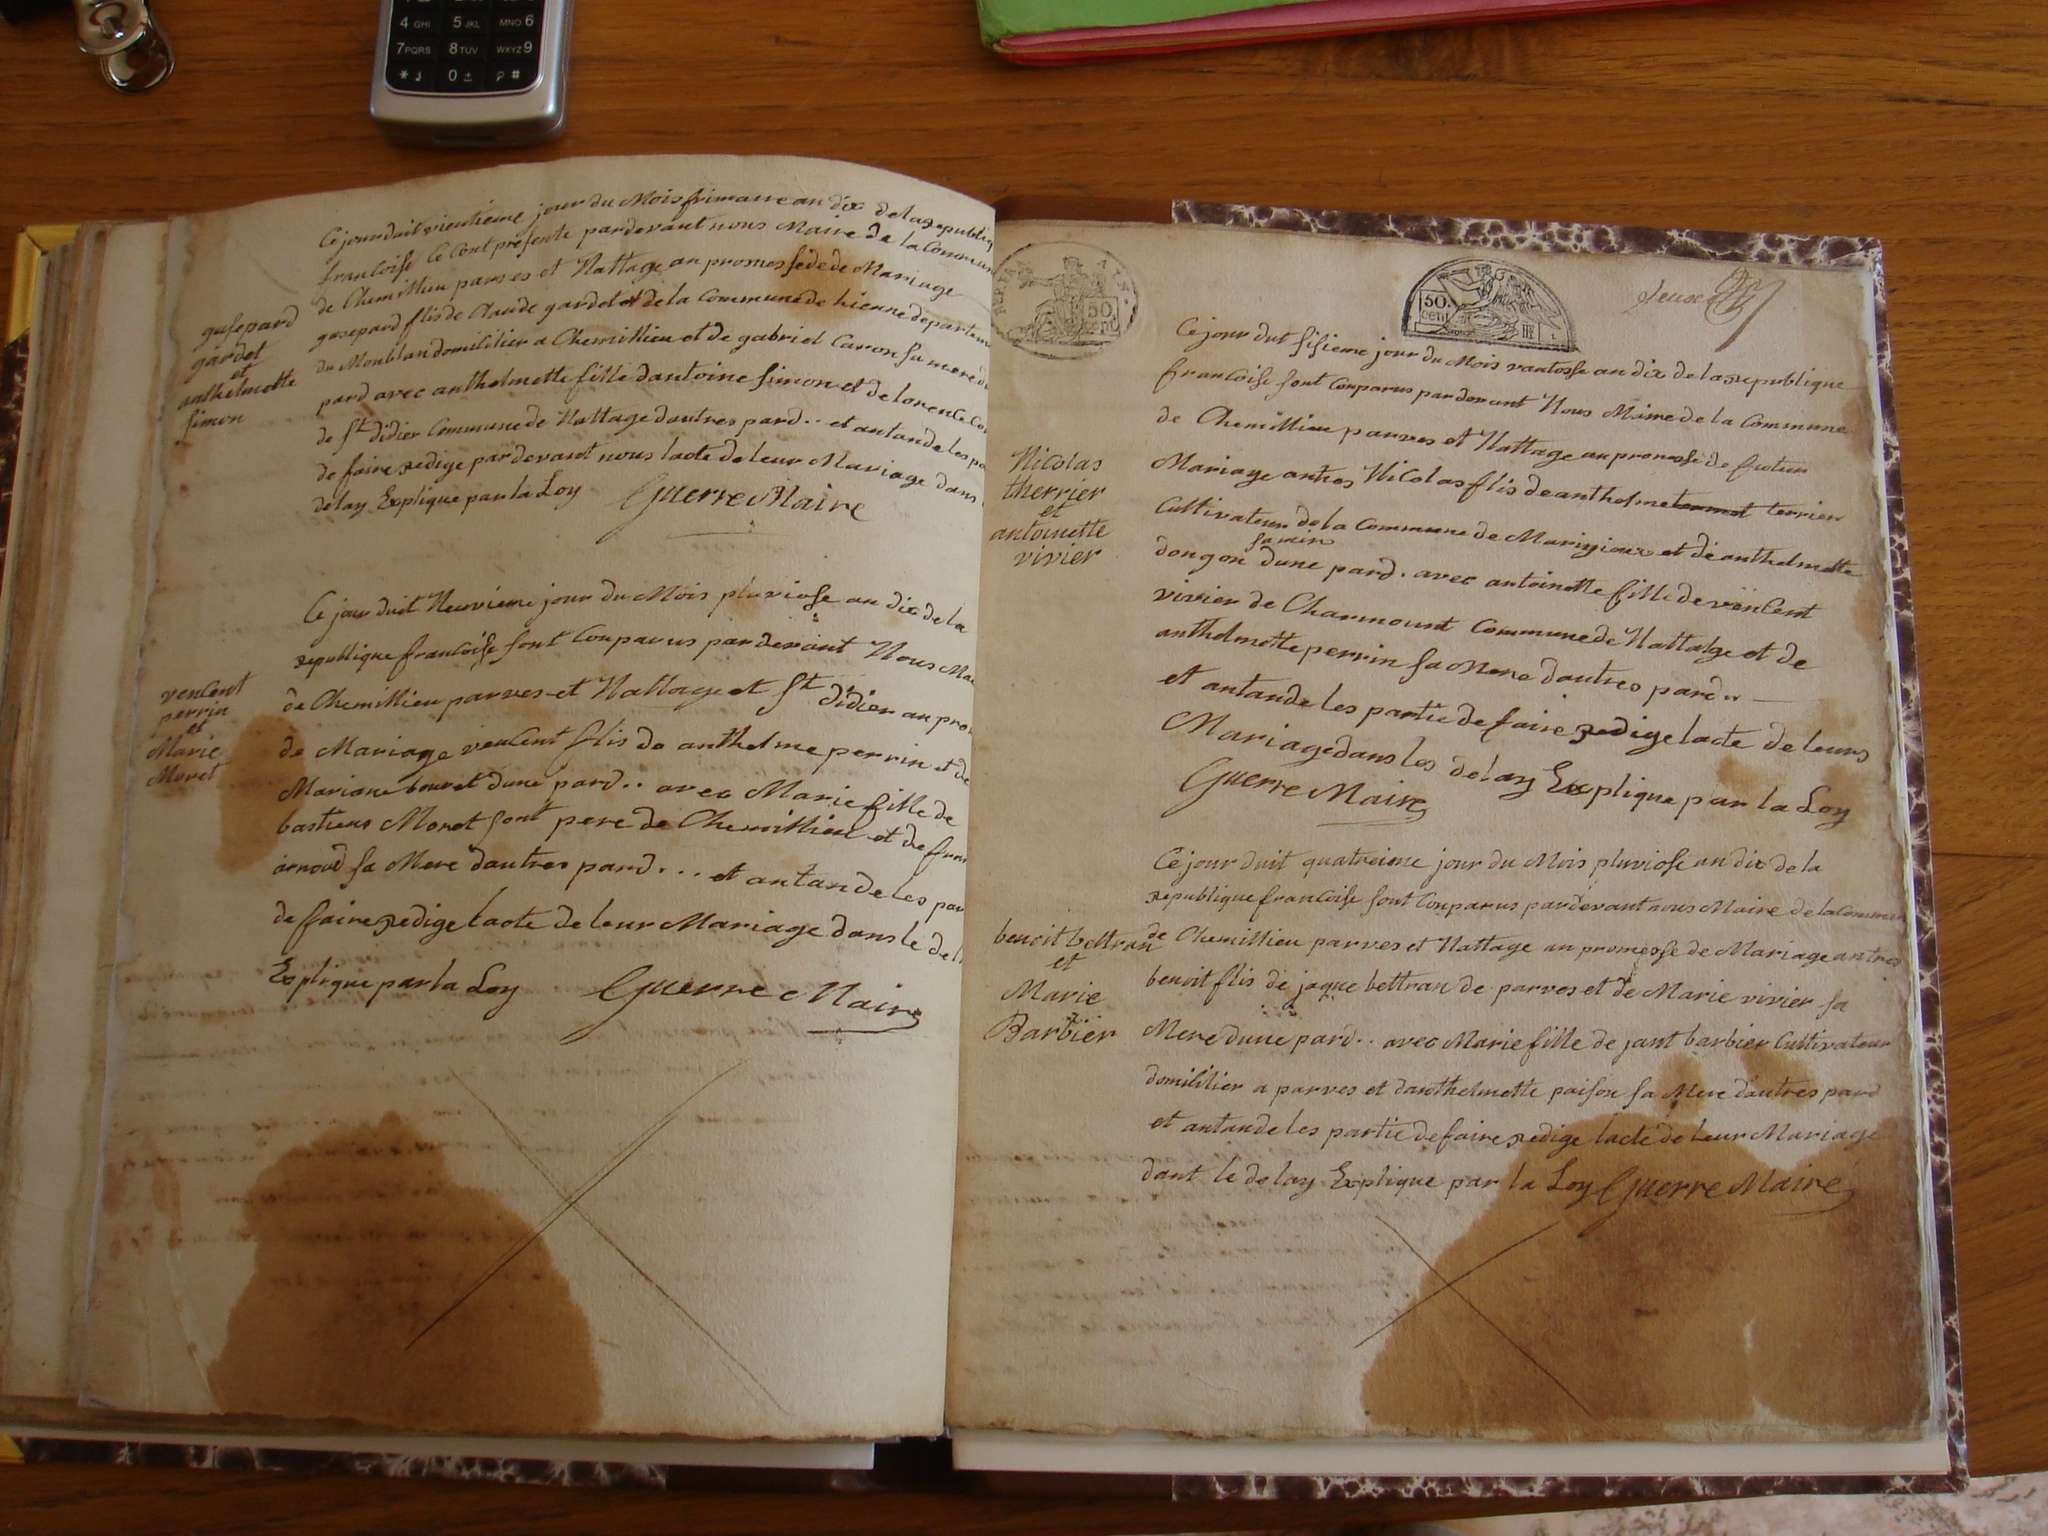 4 GHI 5 JKL MNO 6
7PQRS 8TUV WXYZ9
* 0 #
Ce jour duit vientieme jour du Mois frimaire an dix de la republiq
francoise le Cont presente pardevant nous Maire de la Commun
de Chemillieu parves et Nattage an promesse de de Mariage
gasepard flis de Claude gardet et de la Commune de hienne departem
du Monblan domililier a Chemillieu et de gabriel Caron sa mere du
pard avec anthelmette fille dantoine simon et de lorence
de St didier Commune de Nattage dautres pard .. et antande les pa
de faire redige pardevant nous lacte de leur Mariage dans
delay Explique par la Loy Guerre Maire
gasepard
gardet
et
anthelmette
simon
Ce jour duit Neuvieme jour du Mois pluviose an dix de la
republique francoise sont Conparus pardevant Nous Mai
de Chemillieu parves et Nattage et St didier an pro
de Mariage vencent flis de anthelme perrin et de
Mariane bouvet dune pard .. avec Marie fille de
bastiens Moret sont pere de Chemillieu et de fran
arnoud sa Mere dautres pard ... et antande les par
de faire redige lacte de leur Mariage dans le del
Explique par la Loy Guerre Maire
vencent
perrin
et
Marie
Moret
50
50.
cent
deux
Ce jour duit sisieme jour du Mois vantosse an dix de la republique
francoise sont Conparus pardevant Nous Maire de la Commune
de Chemillieu parves et Nattage an promesse de futeur
Mariage antres Nicolas flis de anthelme terrier
Cultivateur de la Commune de Marigieux et de anthelmette
samere
dongon dune pard . avec antoinette fille de vencent
vivier de Charmount Commune de Nattatge et de
anthelmette perrin sa Mere dautres pard ..
et antande les partie de faire redige lacte de leurs
Mariage dans les delay Explique par la Loy
Guerre Maire
Nicolas
therrier
et
antoinette
vivier
Ce jour duit quatreieme jour du Mois pluviose an dix de la
republique francoise sont Conparus pardevant nous Maire de la Commun
de Chemillieu parves et Nattage an promesse de Mariage antres
benoit flis de jaque bettran de parves et de Marie vivier sa
Mere dune pard .. avec Marie fille de jant barbier Cultivateur
domililier a parves et danthelmette paison sa Mere dautres pard
et antande les partie de faire redige lacte de leur Mariage
dant le delay Explique par la Loy Guerre Maire
benoit bettran
et
Marie
Barbier